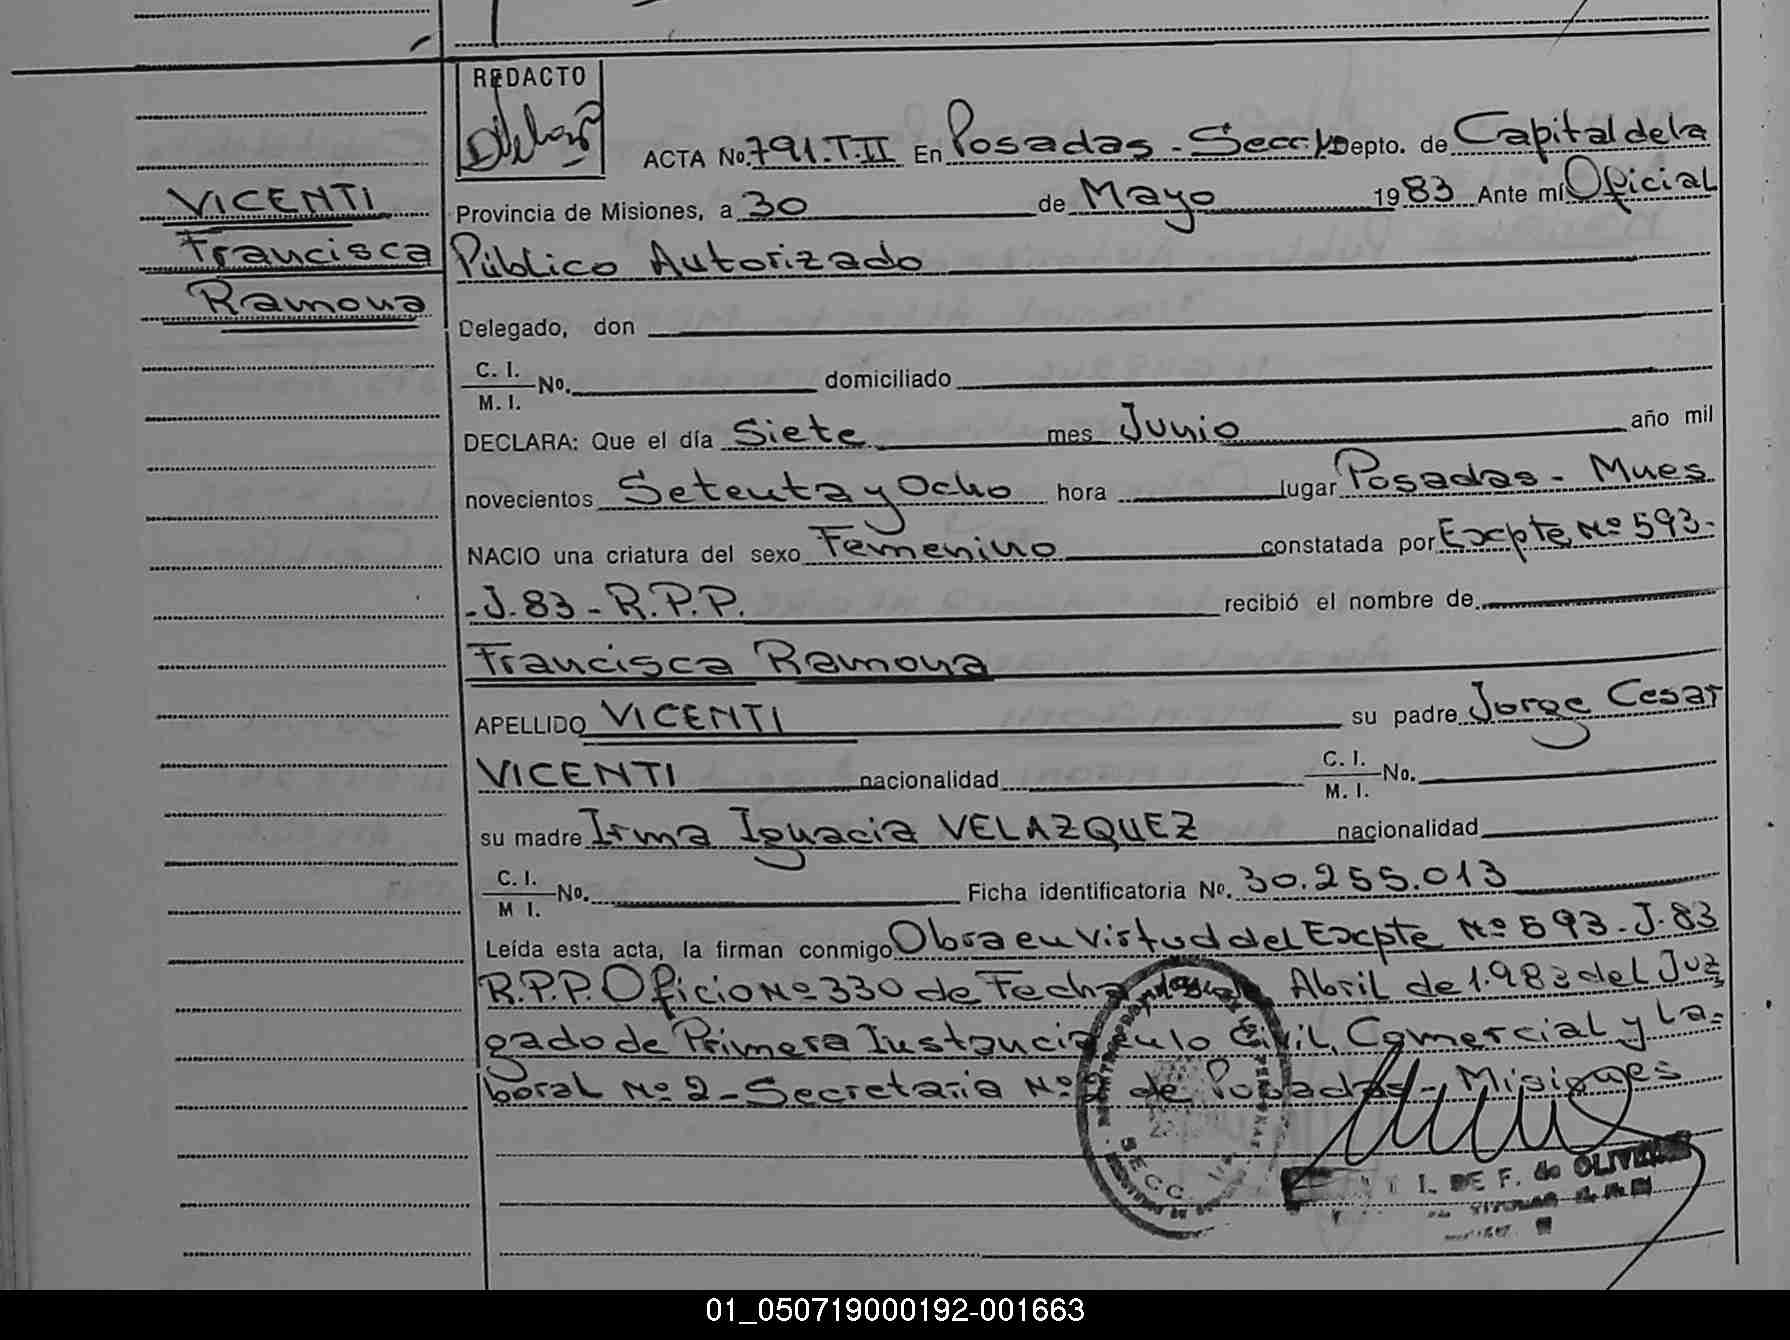 REDACTO
ACTA No. 791.T.II En Posadas - Secc. Depto. de Capital de la
VICENTI
Francisca
Ramona
Provincia de Misiones, a 30 de Mayo 1983 Ante mí Oficial
Público Autorizado
Delegado, don
C. I.
M. I. No. domiciliado
DECLARA: Que el día Siete mes Junio año mil
novecientos Setenta y Ocho hora lugar Posadas - Mnes
NACIO una criatura del sexo Femenino constatada por Excpte Nº 593-
-J.83-R.P.P. recibió el nombre de
Francisca Ramona
APELLIDO VICENTI su padre Jorge Cesar
VICENTI nacionalidad C. I.
M. I. No.
su madre Irma Ignacia VELAZQUEZ nacionalidad
C. I.
M I. No. Ficha identificatoria No. 30.255.013
Leída esta acta, la firman conmigo Obra en virtud del Excpte Nº 593-J-83
R.P.P. Oficio Nº 330 de Fecha Abril de 1.983 del Juz
gado de Primera Instancia en lo Civil, Comercial y La=
boral Nº 2 - Secretaria Nº 2 de Posadas - Misiones
SECC.
I. DE F. de OLIVEIRA
01_050719000192-001663